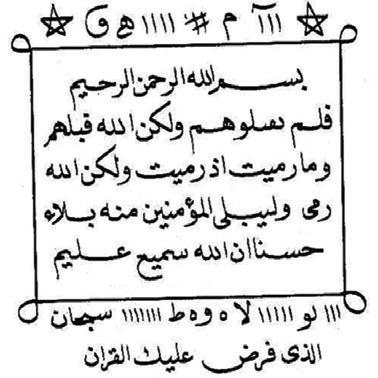 ☆ ااآ م # اااا ه و ☆
بسم الله الرحمن الرحيم
فلم تقتلوهم ولكن الله قتلهم
وما رميت اذ رميت ولكن الله
رمى وليبلى المؤمنين منه بلاء
حسنا ان الله سميع عليم
ااا لو ااااا لا ه و ه ط ااااااا سبحان
الذى فرض عليك القران